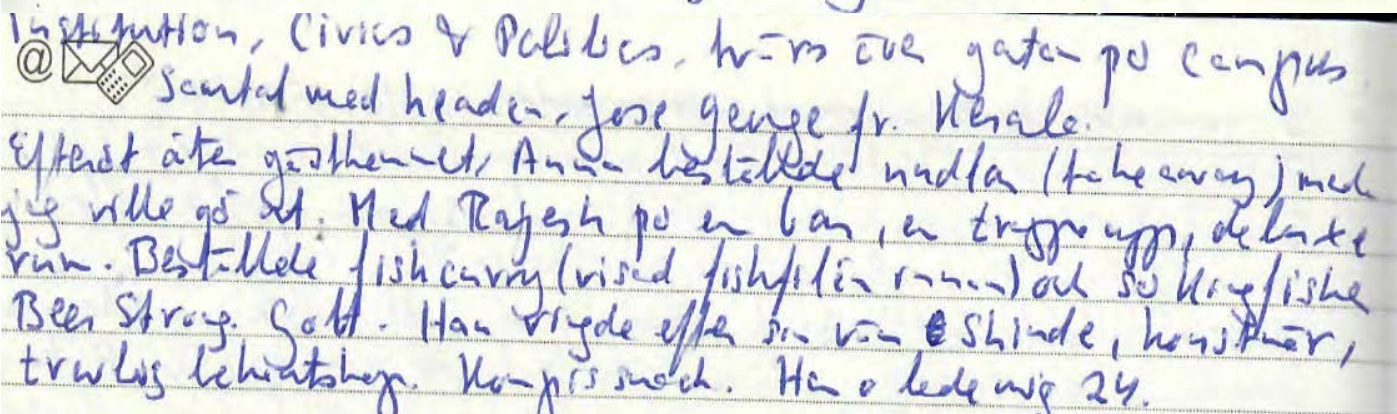 Institution, Civics & Politics, tvärs över gatan på campus.
Samtal med headen, Jose George fr. Kerala.
Efteråt åter gästhemmet, Anna beställde nudlar (take away) med
jag ville gå ut. Med Rajesh på en bar, en trappa upp, de luxe
rum. Beställde fishcurry (visad fishfilén innan) och så Kingfisher
Beer Strong. Gott. Han ringde efter sin vän Shinde, konstnär,
trevlig bekantskap. Kompissnack. Han o ledde mig 24.